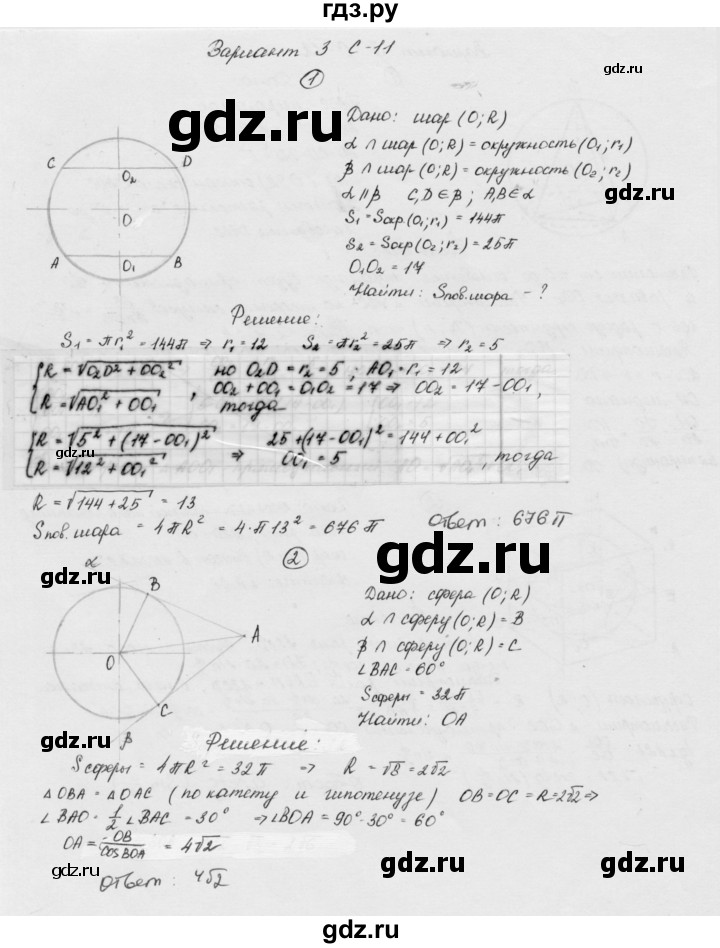 гдз.ру
Вариант 3 С-11
1
gdz.ru
gdz.ru
Дано: шар (O; R)
α ∩ шар (O; R) = окружность (O₁; r₁)
β ∩ шар (O; R) = окружность (O₂; r₂)
α ∥ β C, D ∈ β; A, B ∈ α
S₁ = Sокр.(O₁; r₁) = 144π
S₂ = Sокр(O₂; r₂) = 25π
O₁O₂ = 17
Найти: Sпов.шара - ?
C O₂ D
O
A O₁ B
gdz.ru
gdz.ru
Решение:
S₁ = πr₁² = 144π ⇒ r₁ = 12 S₂ = πr₂² = 25π ⇒ r₂ = 5
{ R = √O₂D² + OO₂² но O₂D = r₂ = 5; AO₁ = r₁ = 12
R = √AO₁² + OO₁ , OO₂ + OO₁ = O₁O₂ = 17 ⇒ OO₂ = 17 - OO₁,
тогда
{ R = √5² + (17 - OO₁)² 25 + (17 - OO₁)² = 144 + OO₁²
R = √12² + OO₁² ⇒ OO₁ = 5 , тогда
gdz.ru
gdz.ru
R = √144 + 25 = 13
Sпов.шара = 4πR² = 4·π13² = 676π Ответ: 676π
2
gdz.ru
gdz.ru
α
B
A
O
C
β
Дано: сфера (O; R)
α ∩ сферу (O; R) = B
β ∩ сферу (O; R) = C
∠BAC = 60°
Sсферы = 32π
Найти: OA
gdz.ru
gdz.ru
Решение:
Sсферы = 4πR² = 32π ⇒ R = √8 = 2√2
△OBA = △OAC (по катету и гипотенузе) OB = OC = R = 2√2 ⇒
∠BAO = 1/2 ∠BAC = 30° ⇒ ∠BOA = 90° - 30° = 60°
OA = OB/cosBOA = 4√2
Ответ: 4√2
gdz.ru
gdz.ru
gdz.ru
gdz.ru